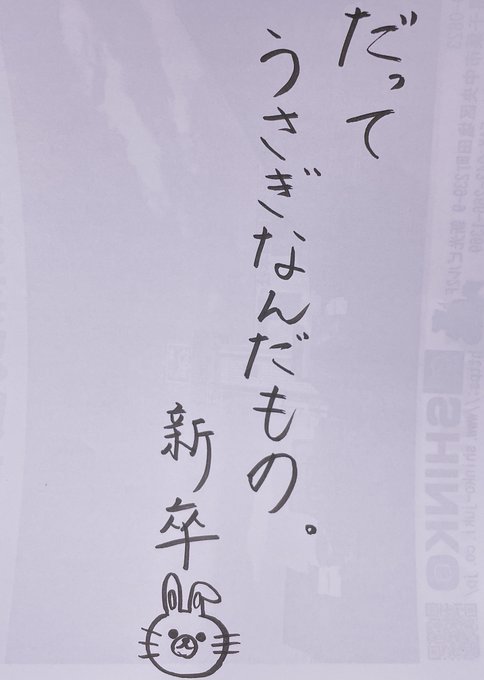 だって
うさぎなんだもの。
新卒
SHINKO